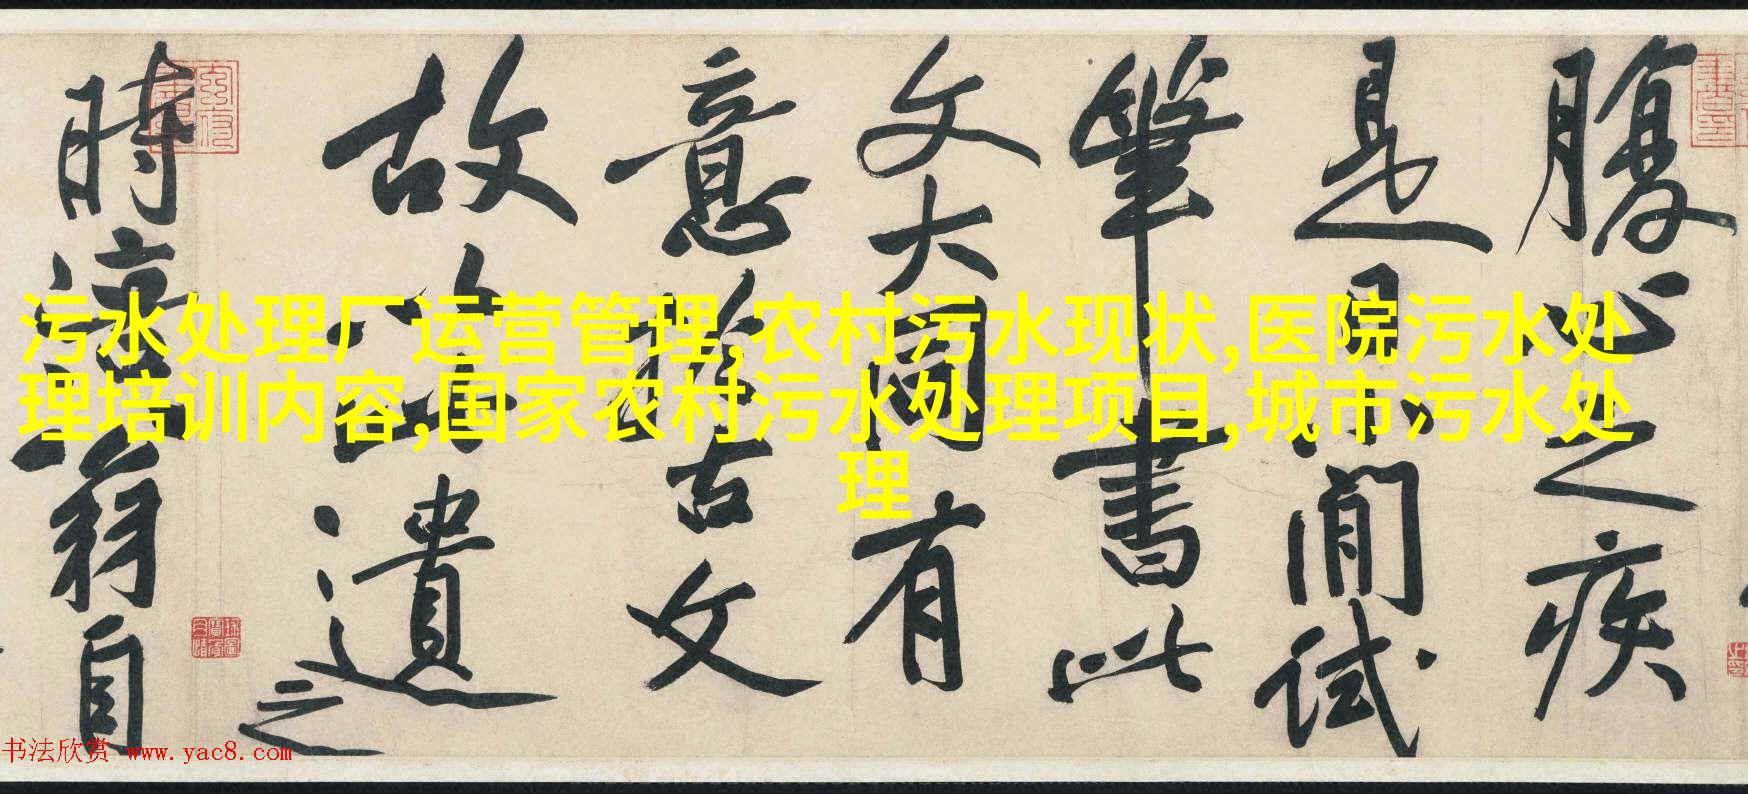 污水处理厂运营管理,农村污水现状,医院污水处
理培训内容,国家农村污水处理项目,城市污水处
理
腹心之疾
是日小閒試
筆書此
文大同有
意於古文
故以此遺之
時涪翁自
书法欣赏 www.yac8.com